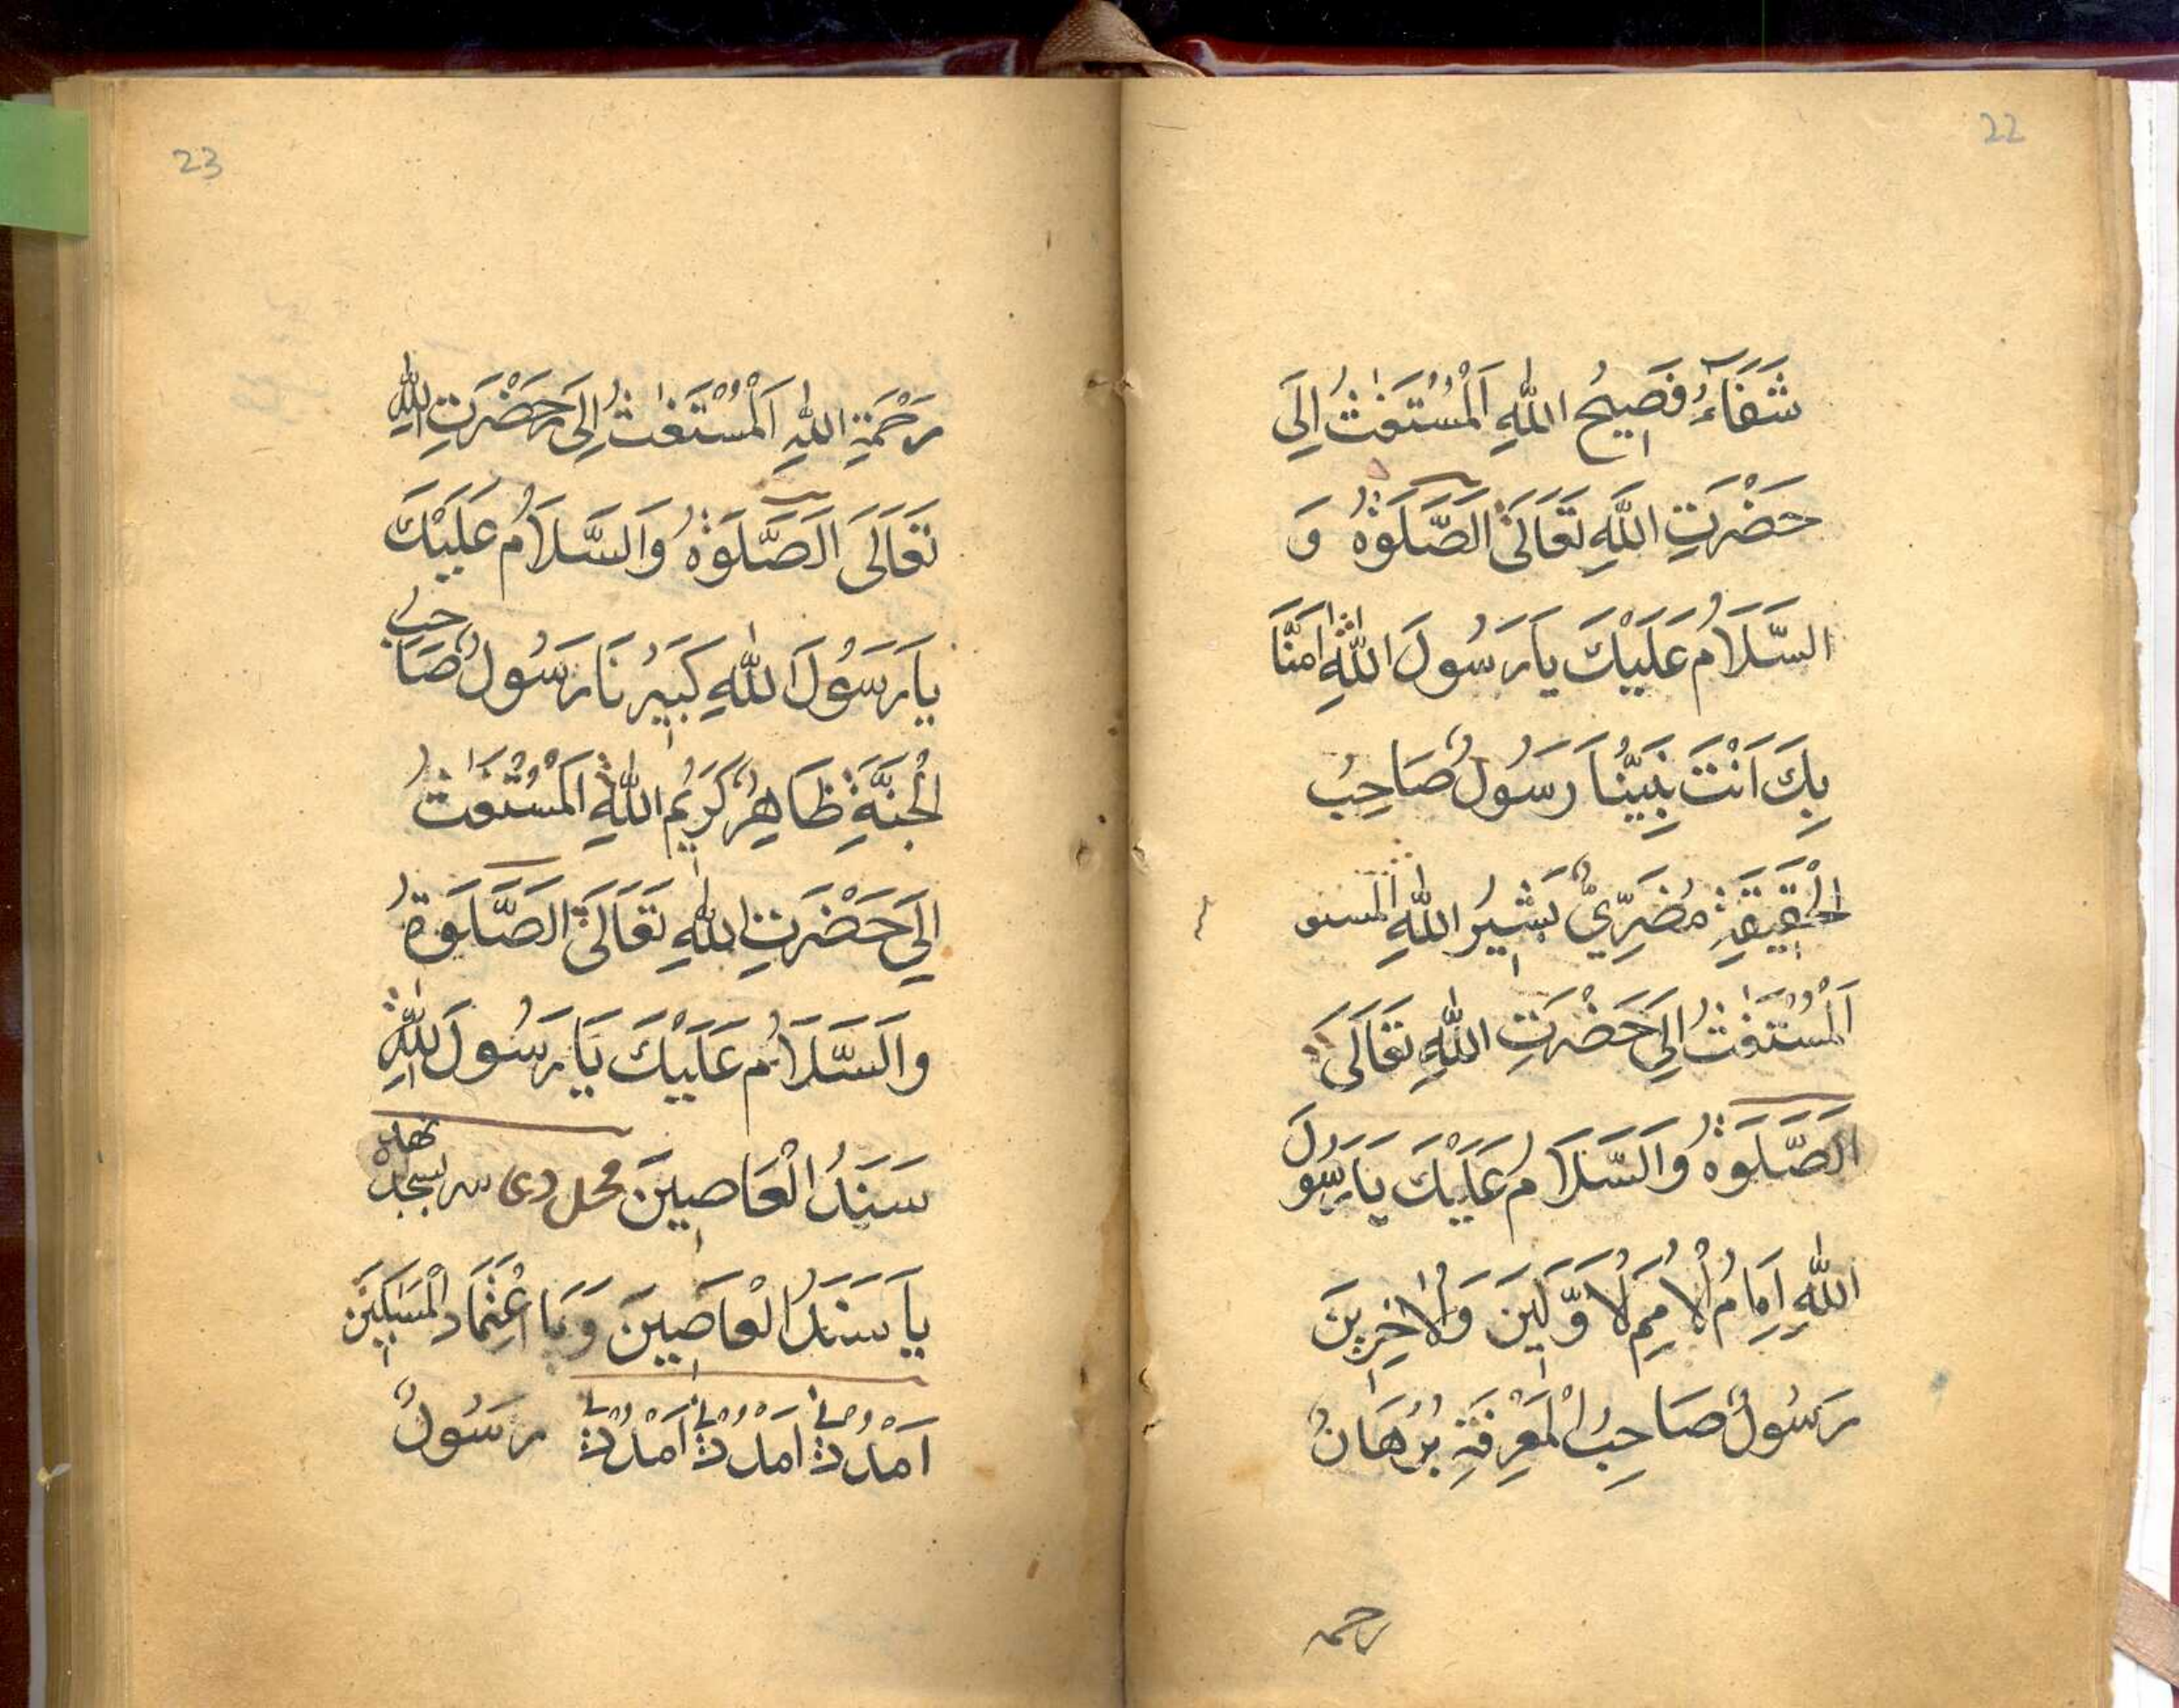 22
شَفَآءُ فَصِيحُ اللّٰهِ اَلْمُسْتَغٰثُ اِلَى
حَضْرَتِ اللّٰهِ تَعَالَى الَصَّلَوةُ وَ
السَّلَامُ عَلَيْكَ يَارَسُولَ اللّٰهِ اٰمَنَّا
بِكَ اَنْتَ نَبِيُّنَا رَسُولٌ صَاحِبُ
الْحَقِيقَةِ مُضَرِّيٌّ بَشِيرُ اللّٰهِ المستو
اَلْمُسْتَغٰثُ اِلَى حَضْرَتِ اللّٰهِ تَعَالَى
الَصَّلَوةُ وَالسَّلَامُ عَلَيْكَ يَارَسُولَ
اللّٰهِ اِمَامُ الْاُمَمِ لْاَوَّلِينَ وَالْاٰخِرِينَ
رَسُولٌ صَاحِبُ الْمَعْرِفَةِ بُرْهَانُ
رحمه
23
رَحْمَةِ اللّٰهِ اَلْمُسْتَغٰثُ اِلَى حَضْرَتِ اللّٰهِ
تَعَالَى اَلصَّلَوةُ وَالسَّلَامُ عَلَيْكَ
يَارَسُولَ اللّٰهِ كَبِيرُنَا رَسُولٌ صَاحِبُ
الْجَنَّةِ ظَاهِرٌ كَرِيمُ اللّٰهِ اَلْمُسْتَغٰثُ
اِلَى حَضْرَتِ اللّٰهِ تَعَالَى الصَّلَوةُ
وَالسَّلَامُ عَلَيْكَ يَا رَسُولَ اللّٰهِ
سَنَدُ الْعَاصِينَ
يَا سَنَدَ الْعَاصِينَ وَيَا عْتِمَادَ الْمَسٰكِينَ
اَمْدُدْنِي اَمْدُدْنِي اَمْدُدْنِي رَسُولٌ